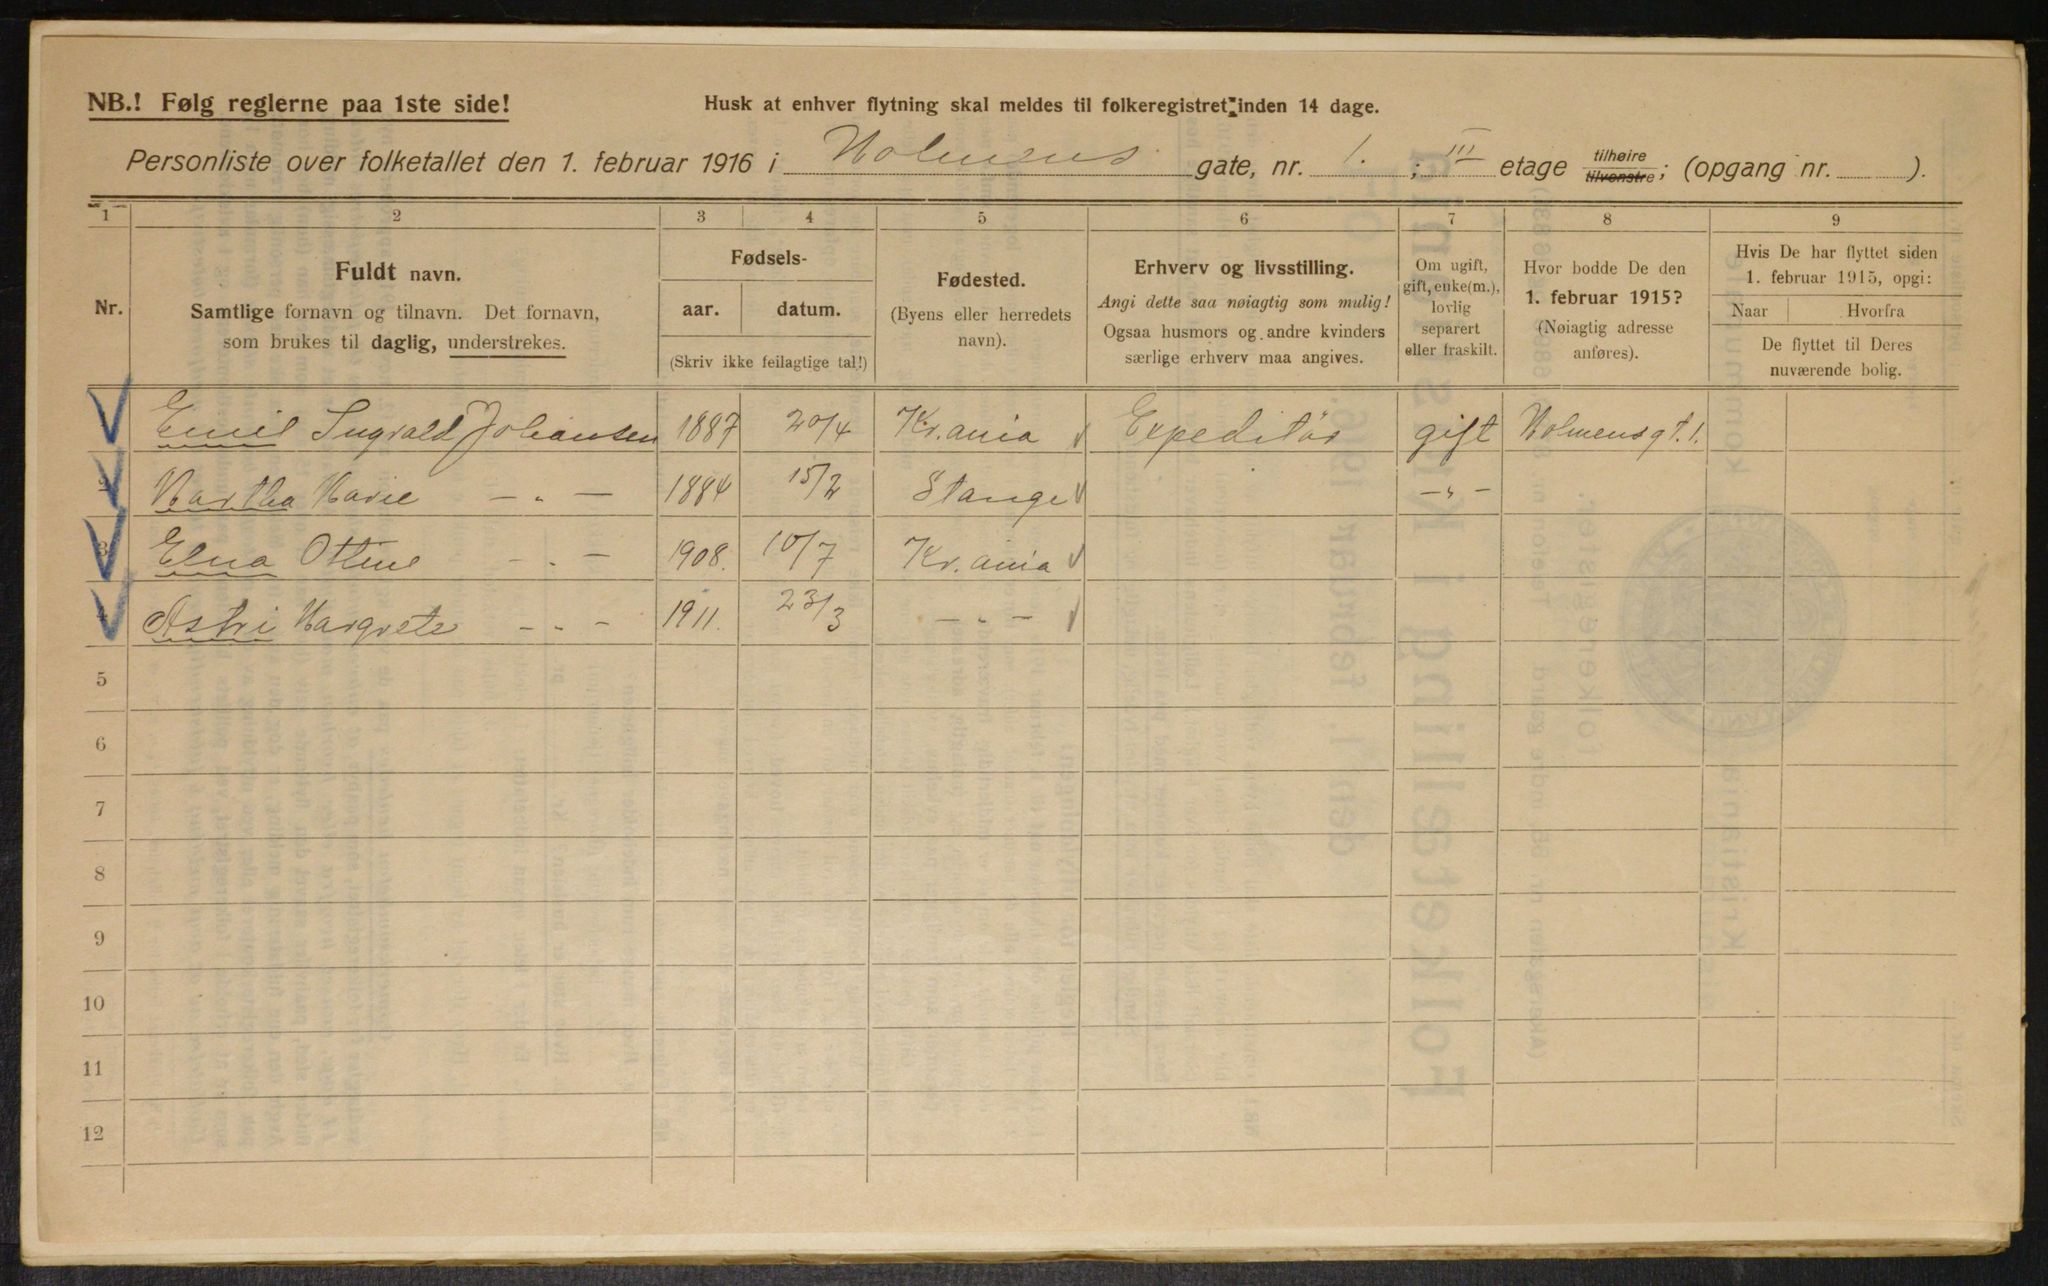 NB.! Følg reglerne paa 1ste side!
Husk at enhver flytning skal meldes til folkeregistret inden 14 dage.
Personliste over folketallet den 1. februar 1916 i Holmens gate, nr. 1. ; III etage tilhøire tilvenstre; (opgang nr. ).
1 2 3 4 5 6 7 8 9
Nr.
Fuldt navn.
Samtlige fornavn og tilnavn. Det fornavn,
som brukes til daglig, understrekes.
Fødsels-
aar. datum.
(Skriv ikke feilagtige tal!)
Fødested.
(Byens eller herredets
navn).
Erhverv og livsstilling.
Angi dette saa nøiagtig som mulig!
Ogsaa husmors og andre kvinders
særlige erhverv maa angives.
Om ugift,
gift, enke(m.),
lovlig
separert
eller fraskilt.
Hvor bodde De den
1. februar 1915?
(Nøiagtig adresse
anføres).
Hvis De har flyttet siden
1. februar 1915, opgi:
Naar Hvorfra
De flyttet til Deres
nuværende bolig.
1 Emil Ingvald Johansen 1887 20/4 Kr.ania Expeditør gift Holmensgt. 1.
2 Martha Marie — „ — 1884 15/2 Stange — „ —
3 Elna Otline — „ — 1908. 10/7 Kr.ania
4 Astri Margrete — „ — 1911. 23/3 — „ —
5
6
7
8
9
10
11
12